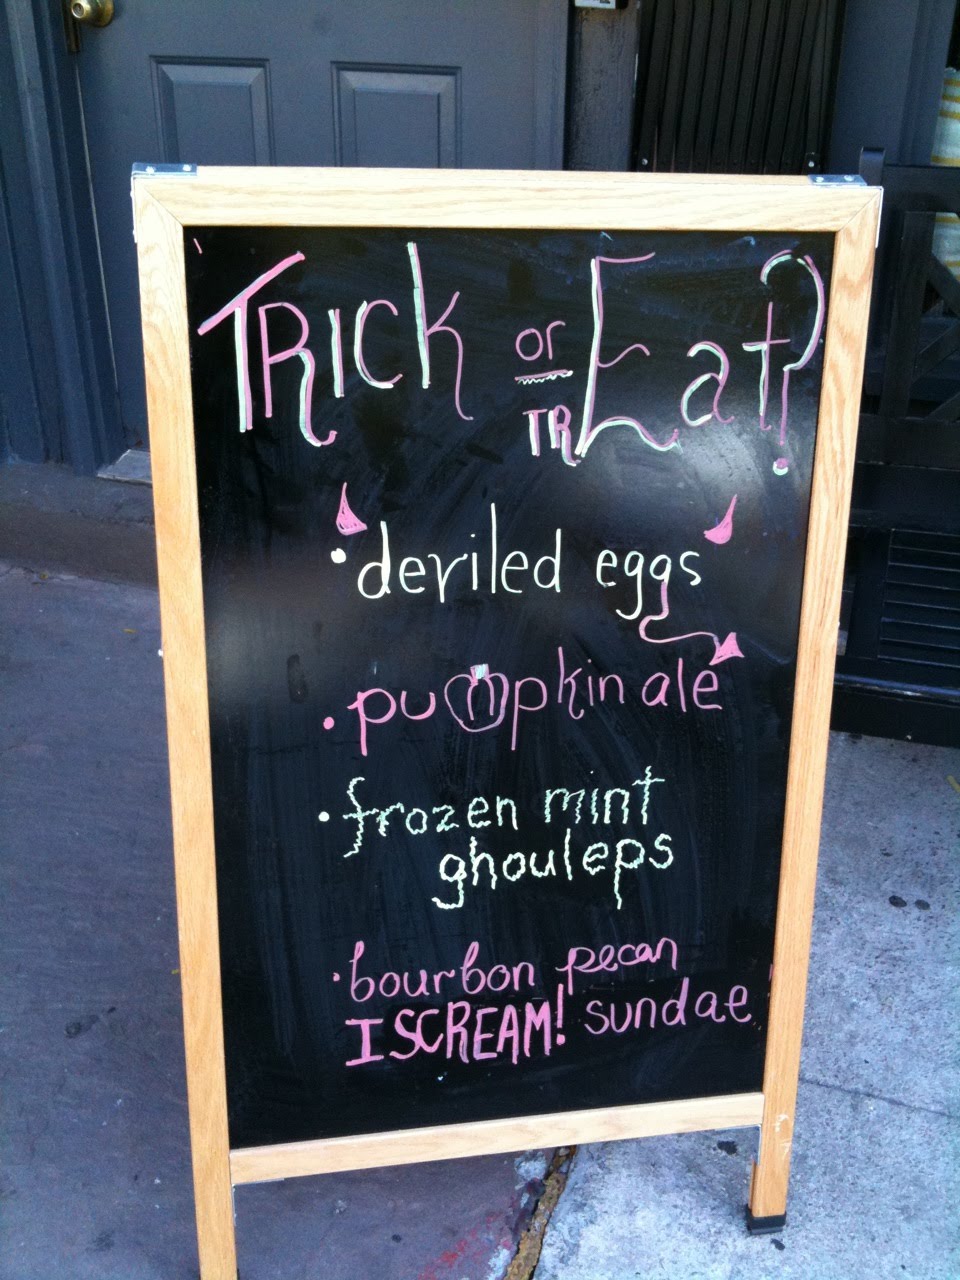 TRICK or TREat?
• deviled eggs
• pumpkin ale
• frozen mint
ghouleps
• bourbon pecan
I SCREAM! sundae